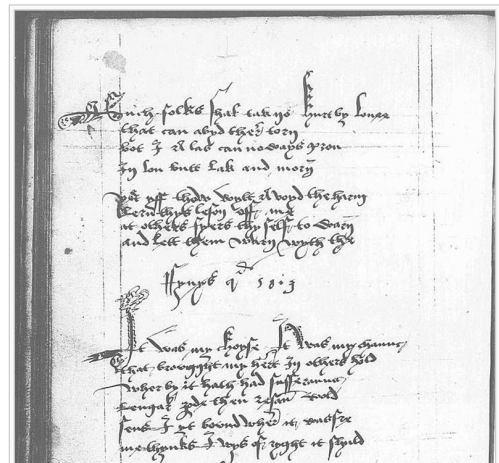 Such folks shal tak no hurt by loue
that can abyd ther torn
bot I A las can no ways prou
In lou butt lak and morn
yett yff thow wylt A voyd the harm
lern thys leson off me
at others fyers thy self to warm
and lett them warn wyth the
ffynys qd
It was my choyse It was my chaunce
that browght my hert In others hold
wher by it hath had sufferaunce
lenger then reson wold
sens I yt bownd wher it was fre
me thynks I wys of ryght it shuld